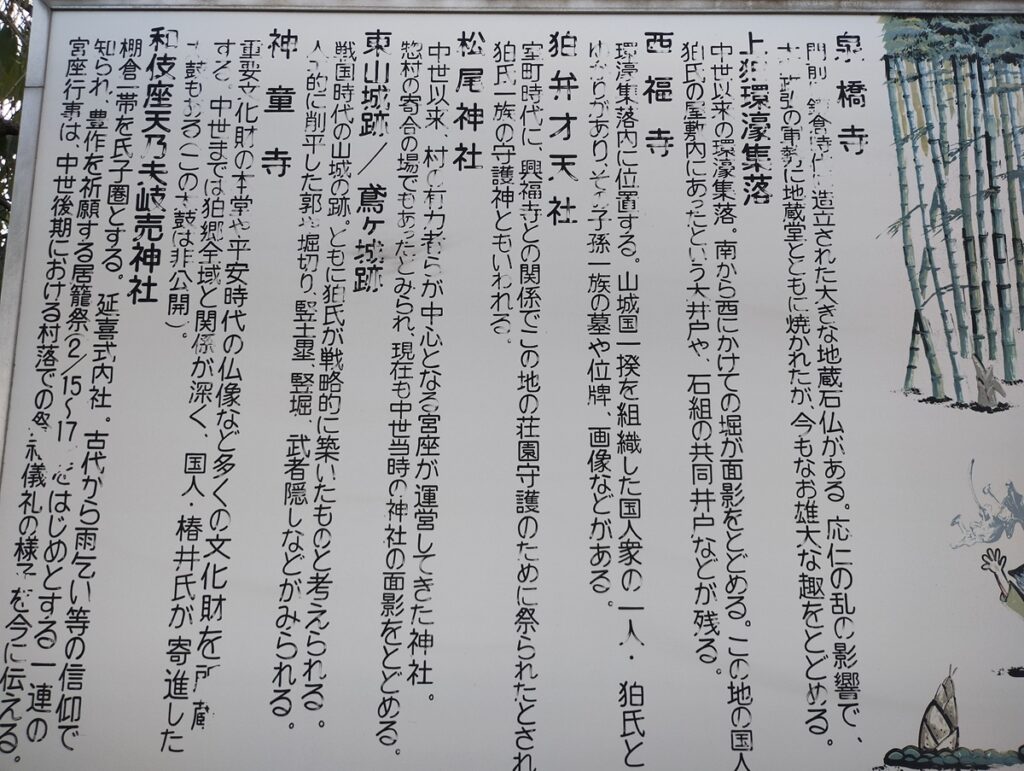 泉橋寺
門前に鎌倉時代に造立された大きな地蔵石仏がある。応仁の乱の影響で、
大 政弘の軍勢に地蔵堂とともに焼かれたが、今もなお雄大な趣をとどめる。
上狛環濠集落
中世以来の環濠集落。南から西にかけての堀が面影をとどめる。この地の国人
狛氏の屋敷内にあったという大井戸や、石組の共同井戸などが残る。
西福寺
環濠集落内に位置する。山城国一揆を組織した国人衆の一人・狛氏と
ゆかりがあり、その子孫一族の墓や位牌、画像などがある。
狛弁才天社
室町時代に、興福寺との関係でこの地の荘園守護のために祭られたとされ
狛氏一族の守護神ともいわれる。
松尾神社
中世以来、村の有力者らが中心となる宮座が運営してきた神社。
惣村の寄合の場でもあったとみられ、現在も中世当時の神社の面影をとどめる。
東山城跡／鳶ヶ城跡
戦国時代の山城の跡。ともに狛氏が戦略的に築いたものと考えられる。
人 的に削平した郭や堀切り、竪土塁、竪堀、武者隠しなどがみられる。
神童寺
重要文化財の本堂や平安時代の仏像など多くの文化財を所蔵
する。中世までは狛郷全域と関係が深く、国人・椿井氏が寄進した
太鼓もある（この太鼓は非公開）。
和伎座天乃夫岐売神社
棚倉一帯を氏子圏とする。延喜式内社。古代から雨乞い等の信仰で
知られ、豊作を祈願する居籠祭（2/15〜17 をはじめとする一連の
宮座行事は、中世後期における村落での祭礼儀礼の様子を今に伝える。